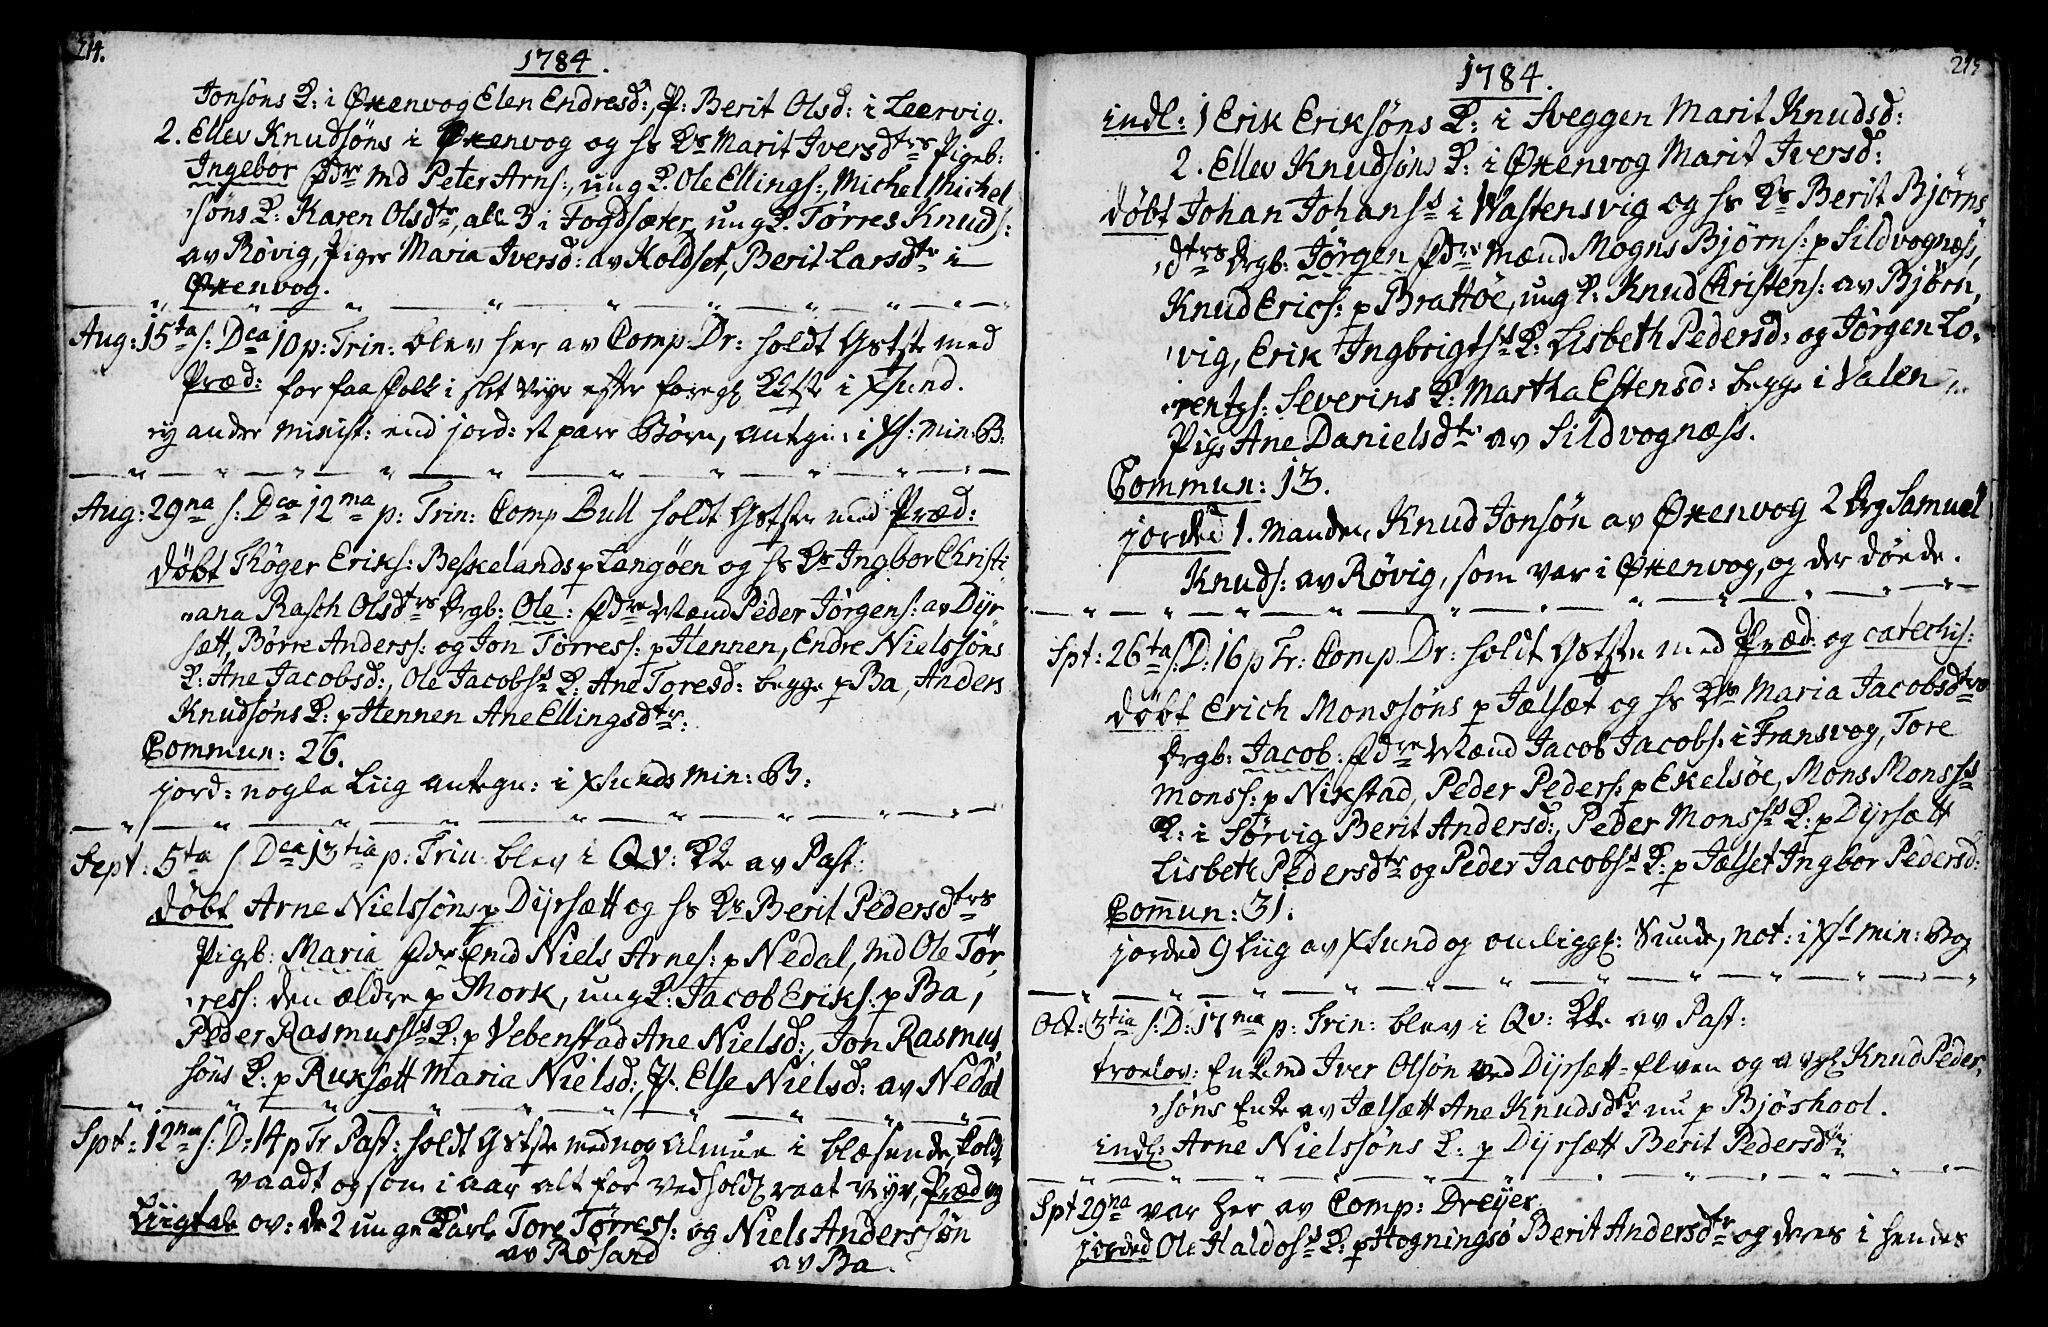 214.
1784.
Jonsöns K: i Ørenvog Elen Endresd:, P: Berit Olsd: i Leervig.
2. Ellev Knudsöns i Ørenvog og hs Ks Marit Iversdtrs Pigeb:
Ingebor Fdre md Peter Arns:, ung K. Ole Ellings:, Michel Michel
söns K: Karen Olsdtr, alle 3 i Fogdsæter, ung K. Törres Knuds:
av Røvig, Piger Maria Iversd: av Koldset, Berit Larsdtr i
Ørenvog.
Aug: 15ta s: Dca 10 p: Trin: blev her av Comp. Dr: holdt Gstste med
Præd: for faa folk i slet veyr efter foreg i Xsund.
ey ander minist: end jord: et parr Börn, antegn: i Xs: min: B:
Aug: 29na s: Dca 12ma p: Trin: Comp Bull holdt Gstste med Præd:
döbt Thöger Eriks: Beskelands p Langöen og hs Ks Ingbor Christi
ana Rasch Olsdtrs Drgb: Ole: Fdre Mænd Peder Jörgens: av Dyr
sætt, Börre Anderss: og Jon Törress: p Hennen, Endre Nielssöns
K: Ane Jacobsd:, Ole Jacobss K: Ane Toresd: begge p Ba, Anders
Knudsöns K: p Hennen Ane Ellingsdtr:
Commun: 26.
jord: nogle Liig antegn: i Xsunds Min: B:
Sept: 5ta s Dca 13tia p: Trin: blev i Qv: K av Past:
döbt Arne Nielssöns p Dyrsætt og hs Ks Berit Pedersdtrs
Pigb: Maria Fdre Md Niels Arnes: p Nedal, md Ole Tör
ress: den ældre p Mork, ung K: Jacob Eriks: p Ba,
Peder Rasmusss K: p Vebenstad Ane Nielsd:, Jon Rasmus
söns K: p Ruksætt Maria Nielsd:, P. Else Nielsd: av Nedal
Spt: 12ma s: D: 14 p Tr Past: holdt Gstste med nog Almue i blæsende koldt
vaadt og som i aar alt for vedholdl raat veyr, Præd og
Liigtale ov: de 2 unge Karle Tore Törress: og Niels Anderssön
av Rosard av Ba.
215
1784.
indl: 1 Erik Eriksöns K: i Sveggen Marit Knudsd:
2. Ellev Knudsöns K: i Ørenvog Marit Iversd:
döbt Johan Johanss i Wastensvig og hs Ks Berit Björns
dtrs Drgb: Jörgen Fdre Mænd Mogns Björns: p Sildvognæss,
Knud Erics: p Brattöe, ung K: Knud Christens: av Björn,
vig, Erik Ingbrigts K: Lisbeth Pedersd: og Jörgen Lo.
rentss: Severins K: Martha Estensd: begge i Valen
Pige Ane Danielsdtr av Sildvognæss.
Commun: 13.
jorded 1. Manden Knud Jonsön av Ørenvog 2 Drg Samuel
Knuds: av Røvig, som var i Ørenvog, og der döede.
Spt: 26ta s: D: 16 p Tr: Comp. Dr: holdt Gstste med Præd: og catechis:
döbt Erich Monssöns p Jælsæt og hs Ks Maria Jacobsdtrs
Drgb: Jacob: Fdre Mænd Jacob Jacobs: i Fransvog, Tore
Monss: p Nikstad, Peder Peders: p Ekelsöe, Mons Monsss
K: i Sørvig Berit Andersd:, Peder Monsss K: p Dyrsætt
Lisbeth Pedersdtr og Peder Jacobss K: p Jælset Ingbor Pedersd:
Commun: 31.
jorded 9 Liig av Xsund og omliggl: Sunde, not: i Xs min: Bog
Oct: 3tia s: D: 17ma p: Trin: blev i Qv: K av Past:
troelov: Enkemd Iver Olsön ved Dyrsætt-Elven og avgl Knud Peder
söns Enke av Jælsætt Ane Knudsdtr nu p Björshool.
indl: Arne Nielssöns K: p Dyrsætt Berit Pedersdtr
Spt 29na var her av Comp: Dreyer
jorded Ole Haldoss K: p Hogningsö Berit Andersdtr og deres i hendes